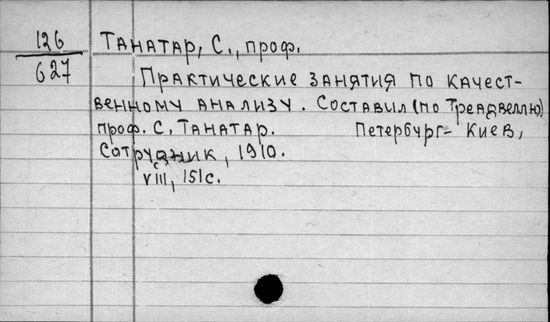 126 Танатар, С., проф.
627
Практические занятия по качест-
венному анализу. Составил (по Треадвеллю)
проф. С. Танатар. Петербург- Киев,
Сотрудник, 1910.
VIII, 151 с.